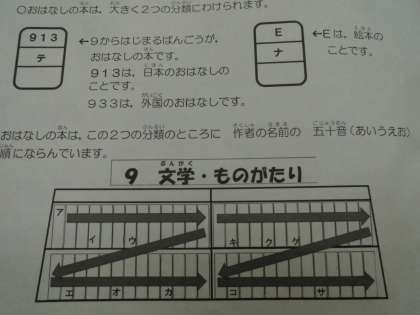 〇おはなしの本は、大きく２つの分類にわけられます。
９１３
テ
←９からはじまるばんごうが、
おはなしの本です。
９１３は、日本のおはなしの
ことです。
９３３は、外国のおはなしです。
E
ナ
←Eは、絵本の
ことです。
おはなしの本は、この２つの分類のところに　作者の名前の　五十音（あいうえお）
順にならんでいます。
９　文学・ものがたり
ア　イ　ウ　キ　ク　ケ
エ　オ　カ　コ　サ